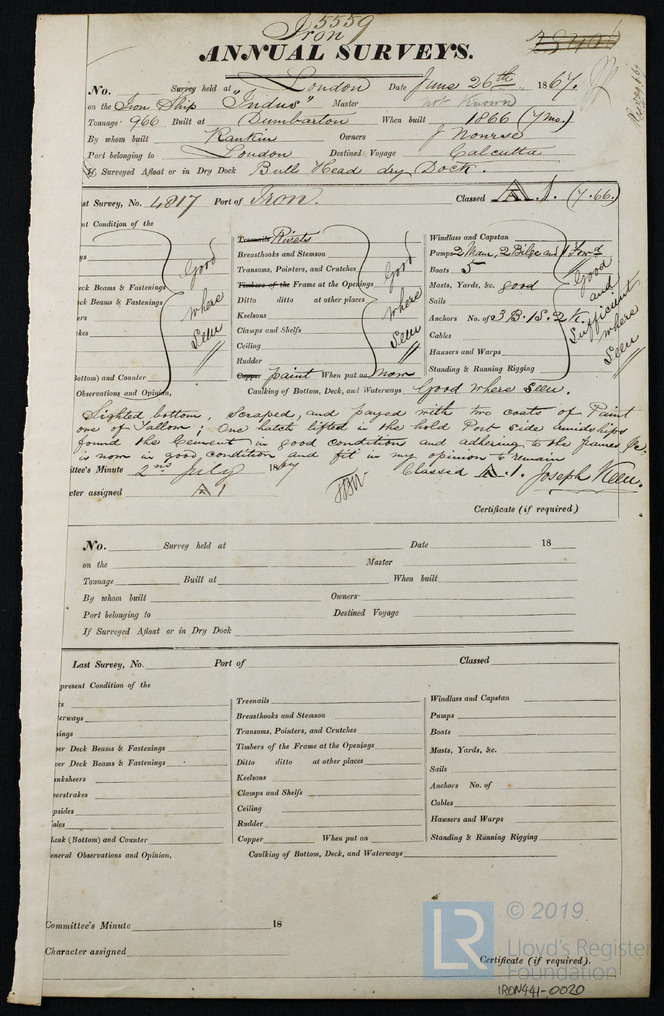 5559
Iron
ANNUAL SURVEYS.
No. Survey held at London Date June 26th 1867.
on the Iron Ship "Indus" Master not known
Tonnage 966 Built at Dumbarton When built 1866 (7 mo.)
By whom built Rankin Owners J Nourse
Port belonging to London Destined Voyage Calcutta
If Surveyed Afloat or in Dry Dock Bull Head dry Dock.
ast Survey, No. 4817 Port of Iron. Classed A 1. (7.66.)
nt Condition of the
ys
eck Beams & Fastenings
eck Beams & Fastenings
rs
akes
Bottom) and Counter
Observations and Opinion,
Good where Seen
Treenails Rivets
Breasthooks and Stemson
Transoms, Pointers, and Crutches
Timbers of the Frame at the Openings
Ditto ditto at other places
Keelsons
Clamps and Shelfs
Ceiling
Rudder
Copper paint When put on now
Good where Seen
Windlass and Capstan
Pumps 2 Main, 2 Bilge and 1 Forwd
Boats 5
Masts, Yards, &c. good
Sails
Anchors No. of 3 B. 1 S. 2 K.
Cables
Hausers and Warps
Standing & Running Rigging
Good and Sufficient where Seen
Caulking of Bottom, Deck, and Waterways Good where seen.
Sighted bottom, scraped, and payed with two coats of Paint
one of Tallow; One hatch lifted in the hold Port side amidships
found the Cement in good condition and adhering to the frames &c.
is now in good condition and fit in my opinion to remain
Classed A.1. Joseph Keen.
ttee's Minute 2nd July 1867
cter assigned A 1
Certificate (if required)
No. Survey held at Date 18
on the Master
Tonnage Built at When built
By whom built Owners
Port belonging to Destined Voyage
If Surveyed Afloat or in Dry Dock
Last Survey, No. Port of Classed
present Condition of the
ks
erways
nings
er Deck Beams & Fastenings
ver Deck Beams & Fastenings
nksheers
erstrakes
psides
ales
lank (Bottom) and Counter
eneral Observations and Opinion,
Treenails
Breasthooks and Stemson
Transoms, Pointers, and Crutches
Timbers of the Frame at the Openings
Ditto ditto at other places
Keelsons
Clamps and Shelfs
Ceiling
Rudder
Copper When put on
Windlass and Capstan
Pumps
Boats
Masts, Yards, &c.
Sails
Anchors No. of
Cables
Hawsers and Warps
Standing & Running Rigging
Caulking of Bottom, Deck, and Waterways
Committee's Minute 18
Character assigned
Certificate (if required).
LR
© 2019
Lloyd's Register
Foundation
IRON441-0020